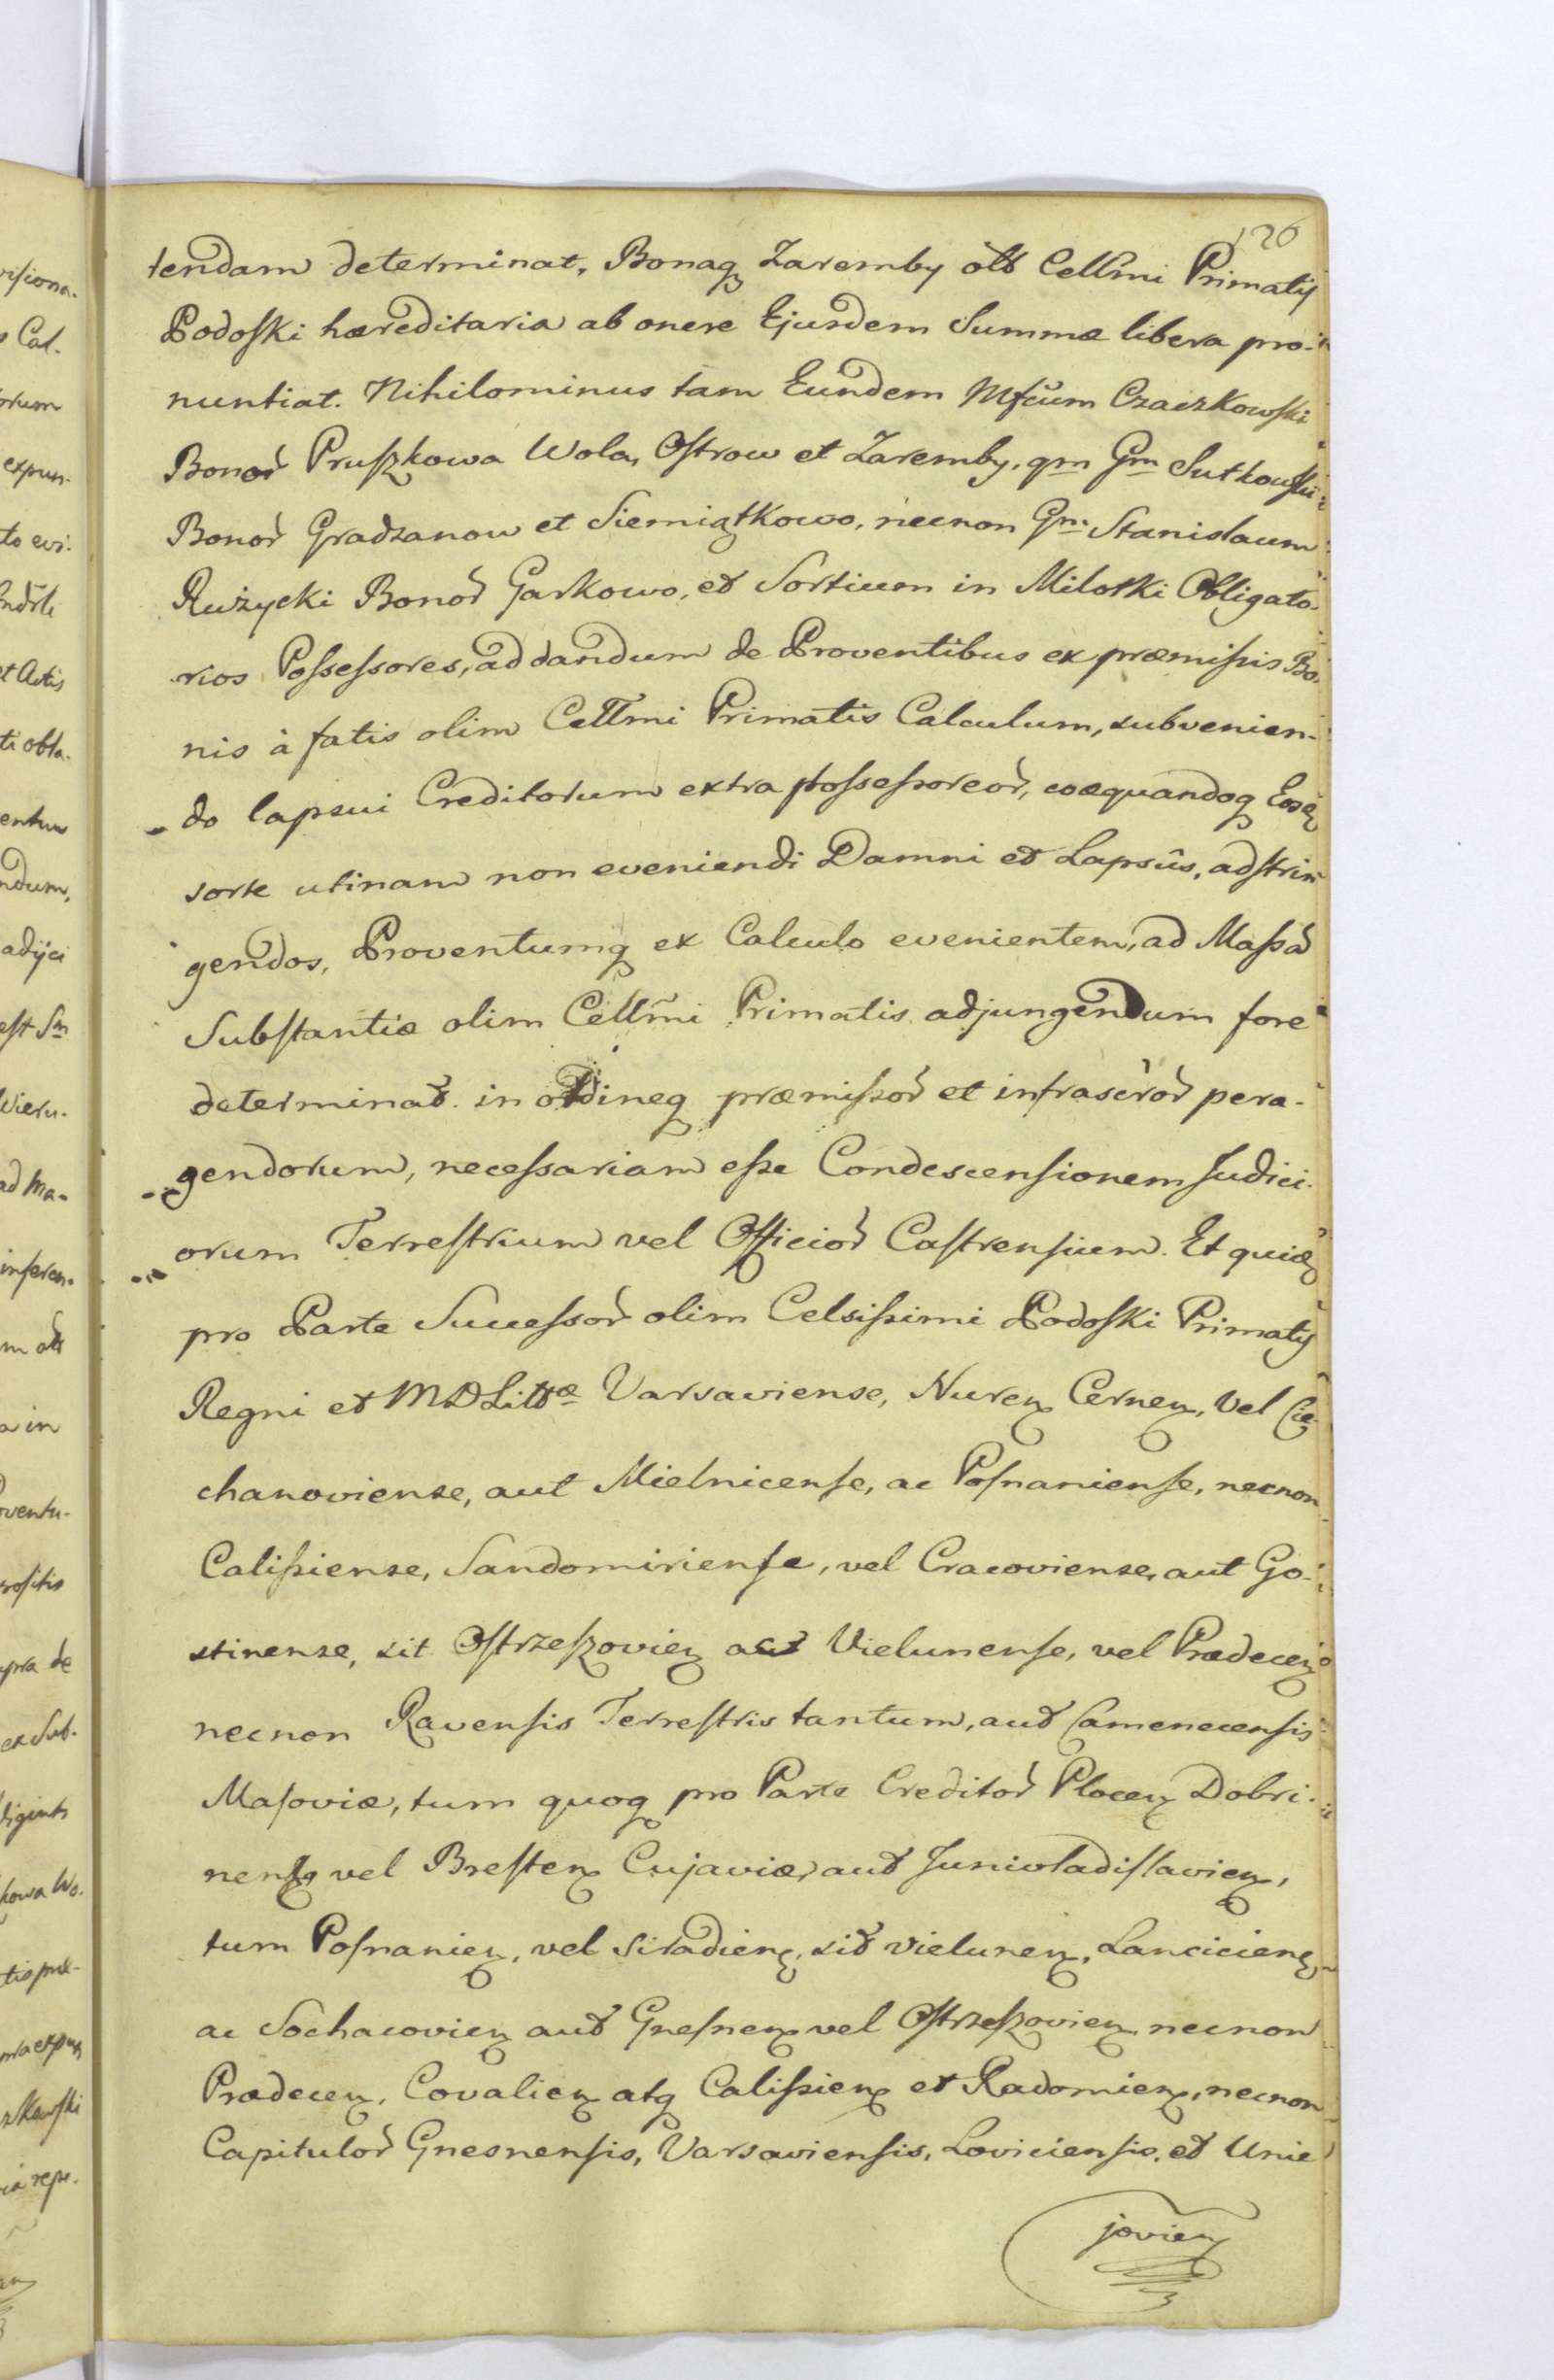 126
tendam determinat, Bonaq Zaremby olt Cellmi Primatis
Podoski hæreditaria ab onere Ejusdem Summæ libera pro-
nuntiat. Nihilominus tam Eundem Mfcum Czaczkowski
Bonor Pruszkowa Wola, Ostrow et Zaremby, qm Gm Sutkowski
Bonor Gradzanow et Siemiątkowo, necnon Gm Stanislaum
Rużycki Bonor Garkowo, et Sortium in Milotki Obligato-
rios Possessores, ad dandum de Proventibus ex præmissis Bo-
nis à fatis olim Cellmi Primatis Calculum, subvenien-
do lapsui Creditorum extra possessoreor, coæquandoq Eosq
sorte utinam non eveniendi Damni et Lapsûs, adstrin
gendos, Proventumq ex Calculo evenientem, ad Massa
Substantiæ olim Cellmi Primatis adjungendum fore
determinat. in ordineq præmissor et infrascror pera-
gendorum, necessariam esse Condescensionem Judici-
orum Terrestrium vel Officior Castrensium. Et quia
pro Parte Successor olim Celsissimi Podoski Primatis
Regni et MDLittæ Varsaviense, Nurenq Cernenq, vel Cie-
chanoviense, aut Mielnicense, ac Posnaniense, necnon
Calissiense, Sandomiriense, vel Cracoviense, aut Go-
stinense, sit Ostrzeszovienq aut Vielunense, vel Prædecenq
necnon Ravensis Terrestris tantum, aut Camenecensis
Masoviæ, tum quoq pro Parte Creditor Plocenq Dobri-
nenq vel Brestenq Cujaviæ, aut Junivladislavienq,
tum Posnanienq, vel Siradienq, sit Vielunenq, Lancicienq,
ac Sochacovienq aut Gnesnenq vel Ostrzeszovienq necnon
Prædecenq, Covalienq atq Calissienq et Radomienq, necnon
Capitulor Gnesnensis, Varsaviensis, Loviciensis, et Unie
jovienq